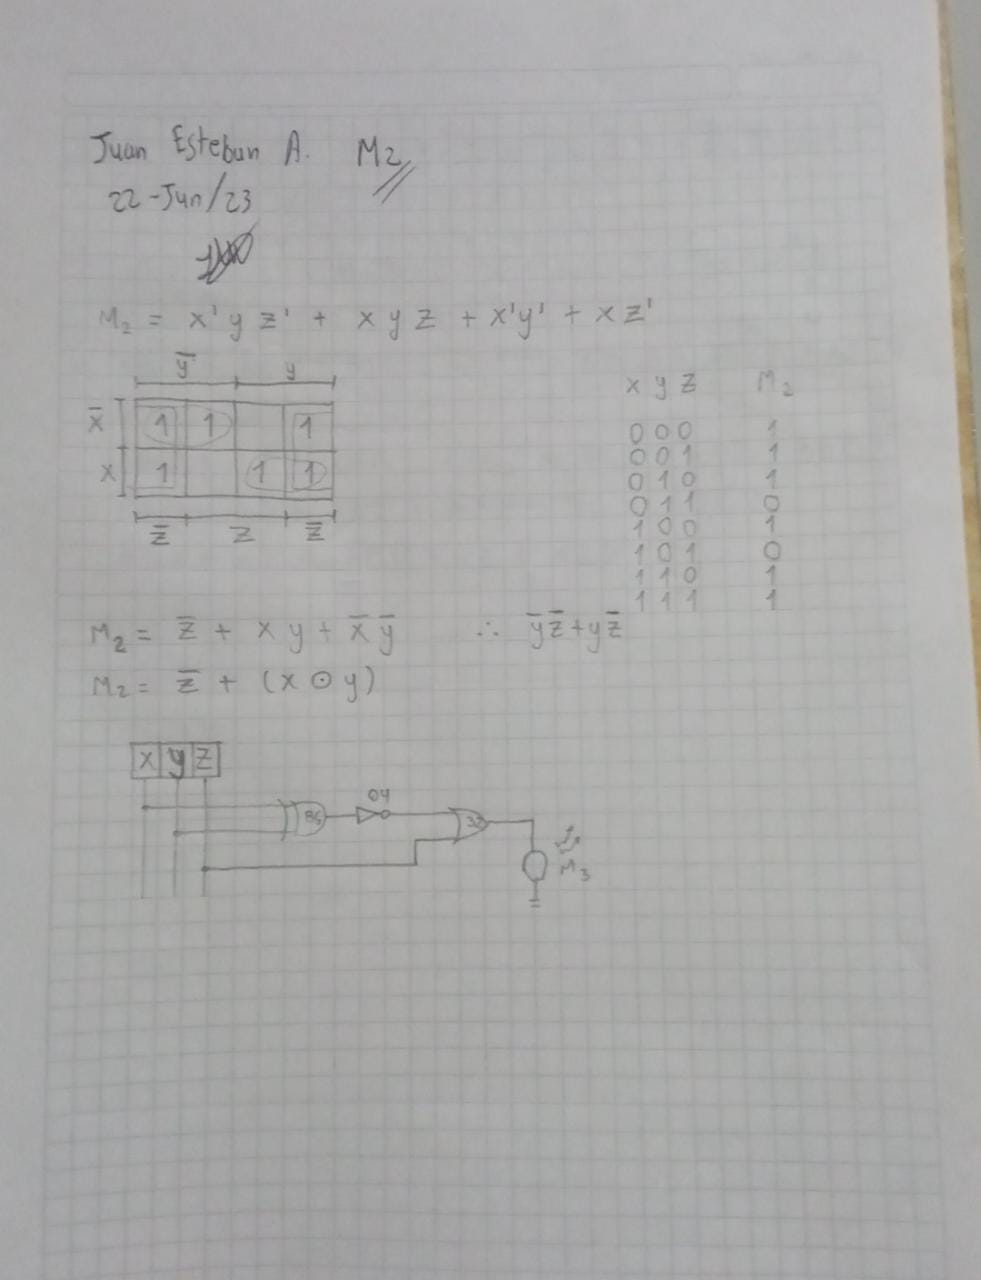 Juan Esteban A. M2
22-Jun/23
M₂ = x'y z' + x y z + x'y' + x z'
y̅ y
x̅ 1 1 1
x 1 1 1
z̅ z z̅
x y z M₂
0 0 0 1
0 0 1 1
0 1 0 1
0 1 1 0
1 0 0 1
1 0 1 0
1 1 0 1
1 1 1 1
M₂ = z̅ + x y + x̅ y̅ ∴ y̅ z̅ + y z̅
M₂ = z̅ + (x ⊙ y)
x y z
86 04 32
M₃